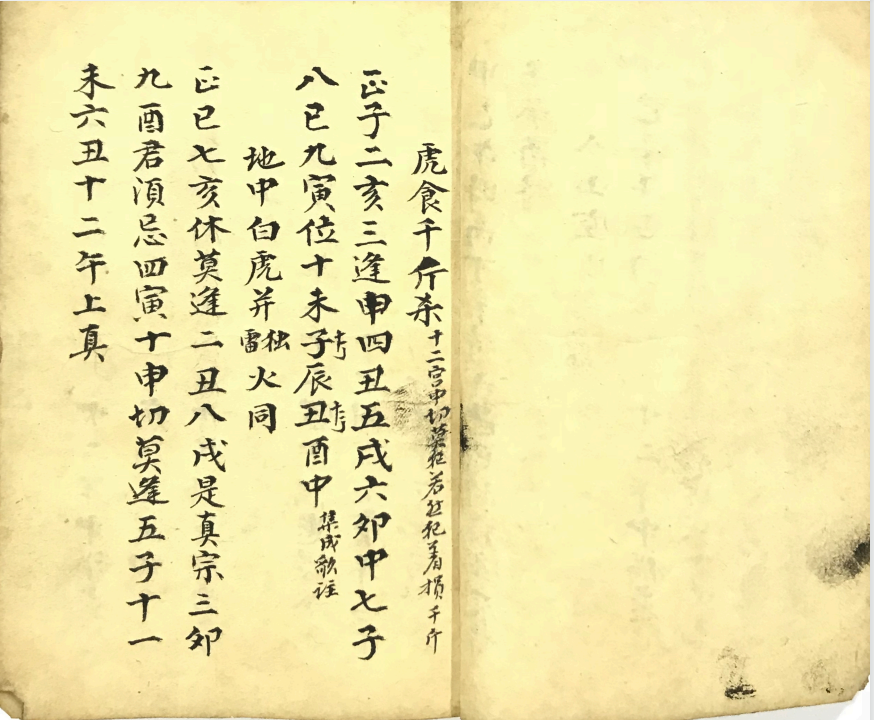 虎食千斤杀十二宫中切莫犯若然犯着損千斤
正子二亥三逢申四丑五戌六卯中七子
八巳九寅位十未子十一月辰丑十二月酉中集成歌註
地中白虎并独雷火同
正巳七亥休莫逢二丑八戌是真宗三卯
九酉君須忌四寅十申切莫逢五子十一
未六丑十二午上真